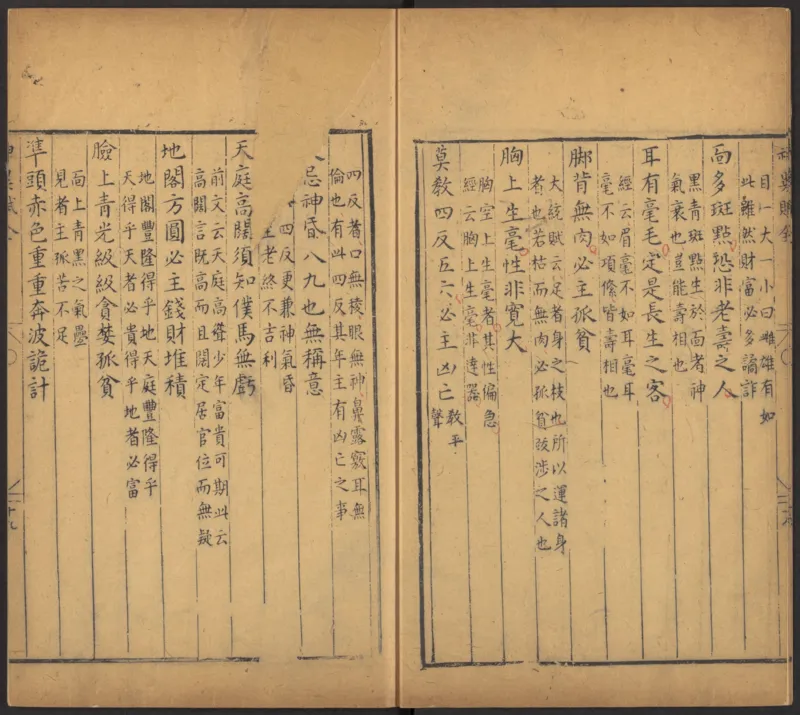 目一大一小曰雌雄有如
此雖然財富必多譎詐
面多斑點恐非老壽之人
黑青斑點生於面者神
氣衰也豈能壽相也
耳有毫毛定是長生之客
經云眉毫不如耳毫耳
毫不如項絛皆壽相也
脚背無肉必主孤貧
大統賦云足者身之枝也所以運諸身
者也若枯而無肉必孤貧跋涉之人也
胸上生毫性非寬大
胸空上生毫者其性偏急
經云胸上生毫非達器
莫教四反五六必主凶亡教平聲
四反者口無棱眼無神鼻露竅耳無
倫也有此四反其年主有凶亡之事
忌神昏八九也無稱意
四反更兼神氣昏
至老終不吉利
天庭高闊須知僕馬無虧
前文云天庭高聳少年富貴可期此云
高闊言既高而且闊定居官位而無疑
地閣方圓必主錢財堆積
地閣豐隆得乎地天庭豐隆得乎
天得乎天者必貴得乎地者必富
臉上青光級級貪婪孤貧
面上青黑之氣疊
見者主孤苦不足
準頭赤色重重奔波詭計